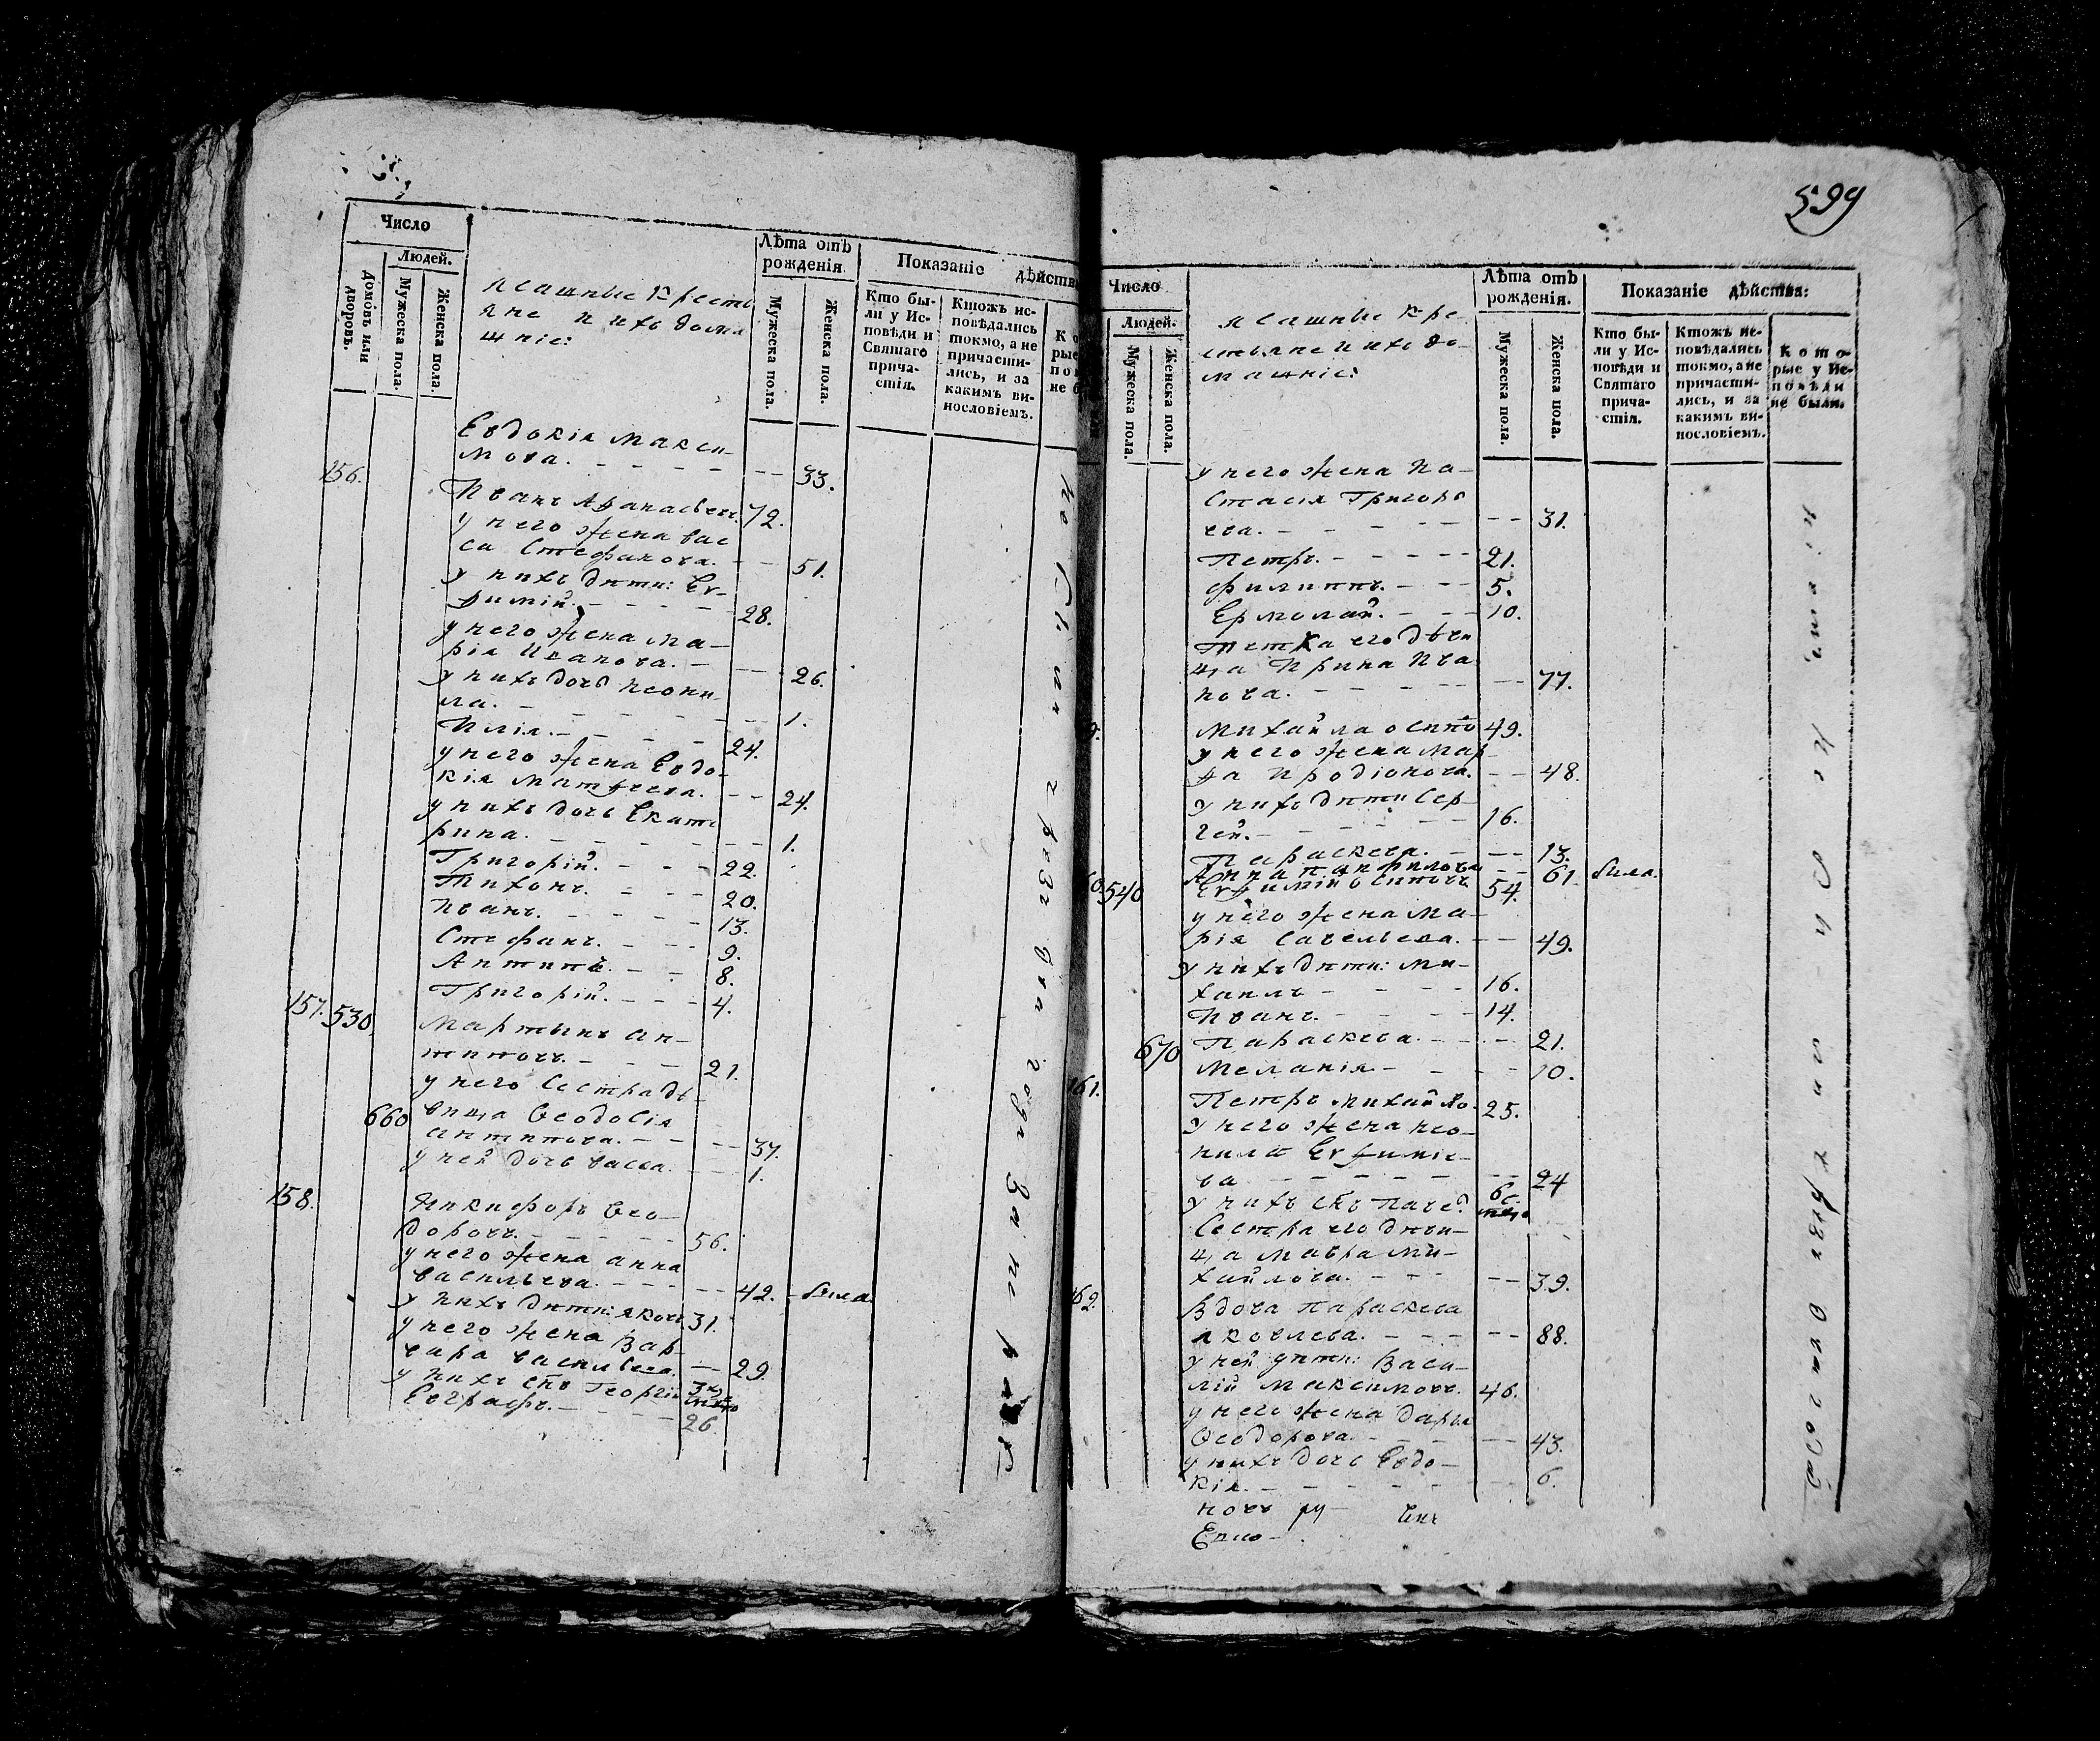 Число
Людей.
Домовъ или дворовъ.
Мужеска пола.
Женска пола.
ясашные кресть
яне и ихъ дома
шніе:
Лѣта отъ
рожденія.
Мужеска пола.
Женска пола.
Показаніе дѣйств
Кто бы-
ли у Ис-
повѣди и
Святаго
прича-
стія.
Ктожъ ис-
повѣдались
токмо, а не
причасти-
лись, и за
какимъ ви-
нословіемъ.
Евдокія Макси-
мова. 33.
156.
Иванъ Афанасьевъ. 72.
у него жена Вас
са Стефанова. 51.
у нихъ дѣти: Ев-
фимій. 28.
у него жена Ма-
рія Иванова. 26.
у нихъ дочь Неони-
ла. 1.
Илія. 24.
у него жена Евдо-
кія Матфеева. 24.
у нихъ дочь Екате
рина. 1.
Григорій. 22.
Тихонъ. 20.
Иванъ. 13.
Стефанъ. 9.
Антипъ. 8.
Григорій. 4.
157. 530
Мартынъ Ан-
типовъ. 21.
у него сестра дѣ-
660 вица Ѳеодосія
Антипова. 37.
у ней дочь Васса. 1.
158.
Никифоръ Ѳео-
доровъ. 56.
у него жена Анна
Васильева. 42. была
у нихъ дѣти: Яковъ 31.
у него жена Вар-
вара Васильева. 29.
у нихъ сынъ Георгій
Евграфъ. 26.
599
Число
Людей.
Мужеска пола.
Женска пола.
ясашные кре
стьяне и ихъ до-
машніе:
Лѣта отъ
рожденія.
Мужеска пола.
Женска пола.
Показаніе дѣйства:
Кто бы-
ли у Ис-
повѣди и
Святаго
прича-
стія.
Ктожъ ис-
повѣдались
токмо, а не
причасти-
лись, и за
какимъ ви-
нословіемъ.
Кото-
рые у Ис-
повѣди
не были.
у него жена На-
стасія Григорь
ева. 31.
Петръ. 21.
Филиппъ. 5.
Ермолай. 10.
Тетка его дѣви
ца Ирина Ива
нова. 77.
Михайла Осипо 49.
у него жена Мар-
фа Иродіонова. 48.
у нихъ дѣти Сер-
гей. 16.
Параскева. 13.
Анна Панфилова 61. была.
540 Евфимій Осиповъ. 54.
у него жена Ма-
рія Савельева. 49.
у нихъ дѣти: Ми-
хаилъ 16.
Иванъ. 14.
670 Параскева. 21.
Меланія 10.
161.
Петръ Михайло. 25.
у него жена Нео-
нила Евфиміе-
ва 24
у нихъ сынъ Павелъ
Сестра его дѣви-
ца Мавра Ми-
хайлова. 39.
162.
Вдова Параскева
Яковлева. 88.
у ней дѣти: Васи-
лій Максимовъ. 46.
у него жена Дарья
Ѳеодорова. 43.
у нихъ дочь Евдо-
кія. 6.
новъ ру-